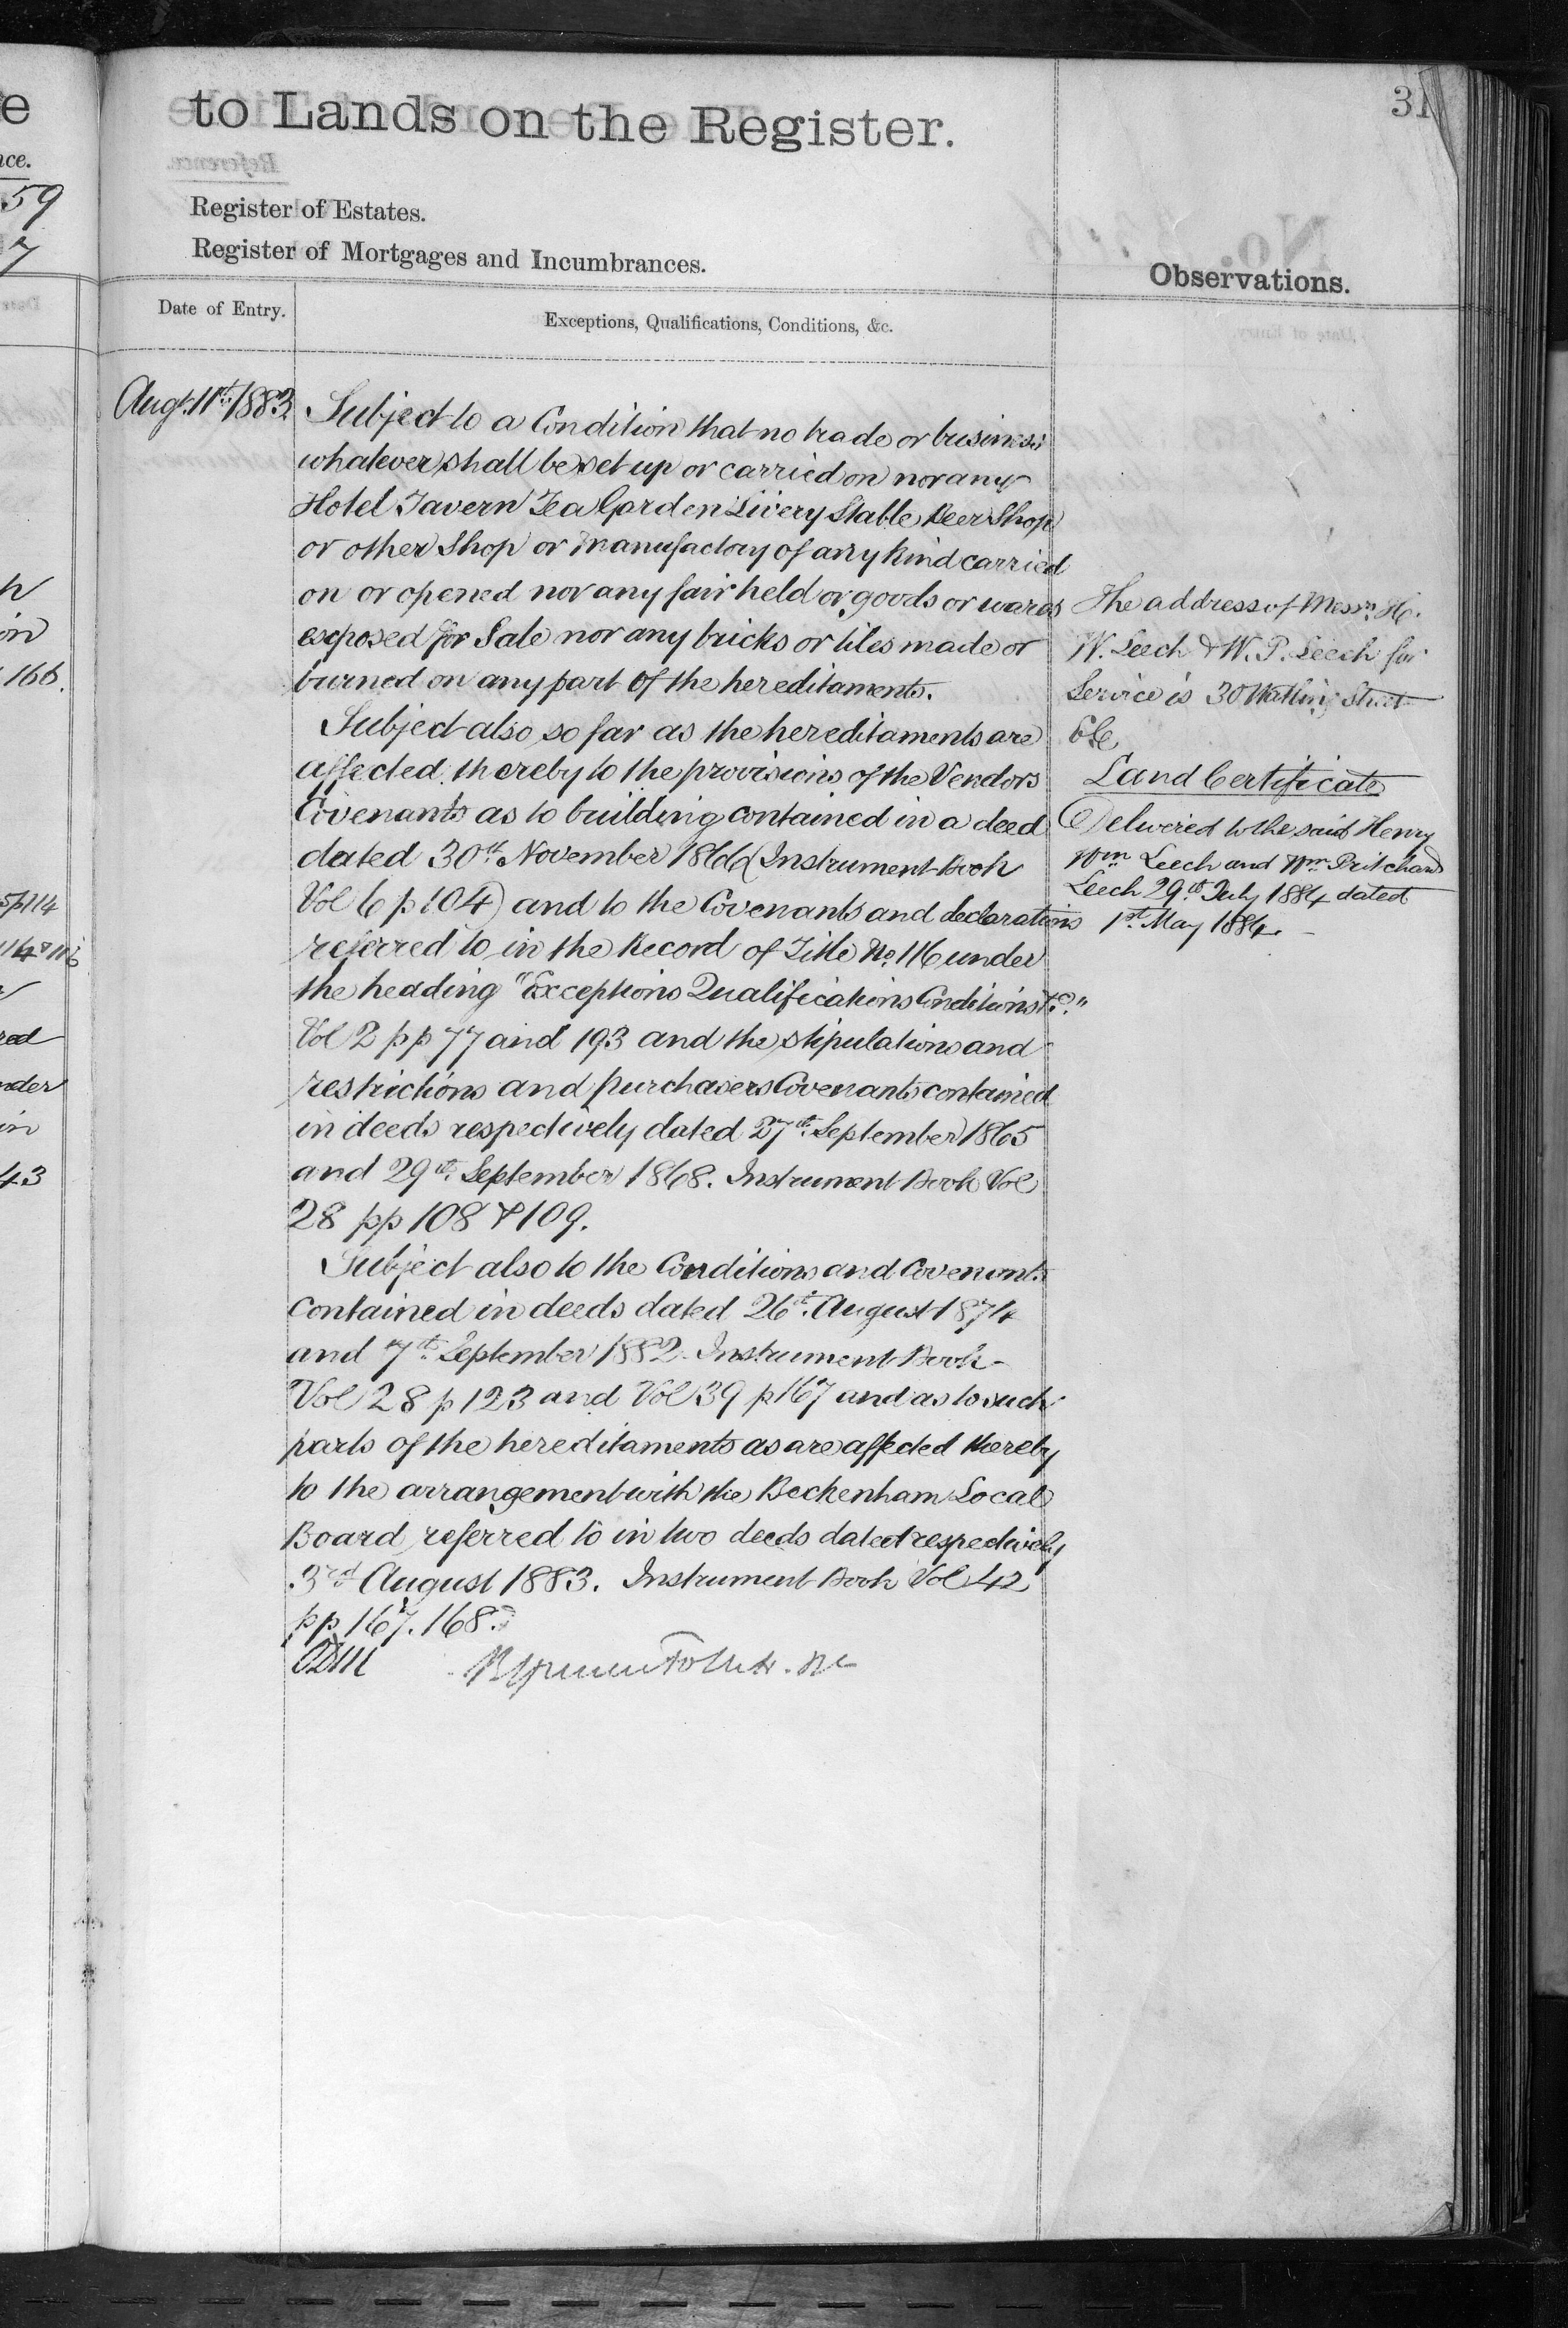 to Lands on the Register.
31
Register of Estates.
Register of Mortgages and Incumbrances.
Observations.
Date of Entry.
Exceptions, Qualifications, Conditions, &c.
Augt. 11th. 1883
Subject to a Condition that no trade or business
whatever shall be set up or carried on nor any
Hotel Tavern Tea Garden Livery Stable Beer Shop
or other Shop or Manufactory of any kind carried
on or opened nor any fair held or goods or wares
exposed for Sale nor any bricks or tiles made or
burned on any part of the hereditaments.
Subject also so far as the hereditaments are
affected thereby to the provisions of the Vendors
Covenants as to building contained in a deed
dated 30th November 1866 (Instrument Book
Vol 6 p 104) and to the Covenants and declarations
referred to in the Record of Title No. 116 under
the heading "Exceptions Qualifications Conditions &c."
Vol 2 pp 77 and 193 and the stipulations and
restrictions and purchasers Covenants contained
in deeds respectively dated 27th. September 1865
and 29th. September 1868. Instrument Book Vol
28 pp 108 & 109.
Subject also to the Conditions and Covenants
contained in deeds dated 26th. August 1874
and 7th. September 1882. Instrument Book
Vol 28 p 123 and Vol 39 p 167 and as to such
parts of the hereditaments as are affected thereby
to the arrangement with the Beckenham Local
Board referred to in two deeds dated respectively
3rd August 1883. Instrument Book Vol 42
pp 167. 168.
The address of Messrs. H.
W. Leech & W. P. Leech for
Service is 30 Watling Street
E.C.
Land Certificate
Delivered to the said Henry
Wm Leech and Wm. Pritchard
Leech 29th. July 1884 dated
1st. May 1884.